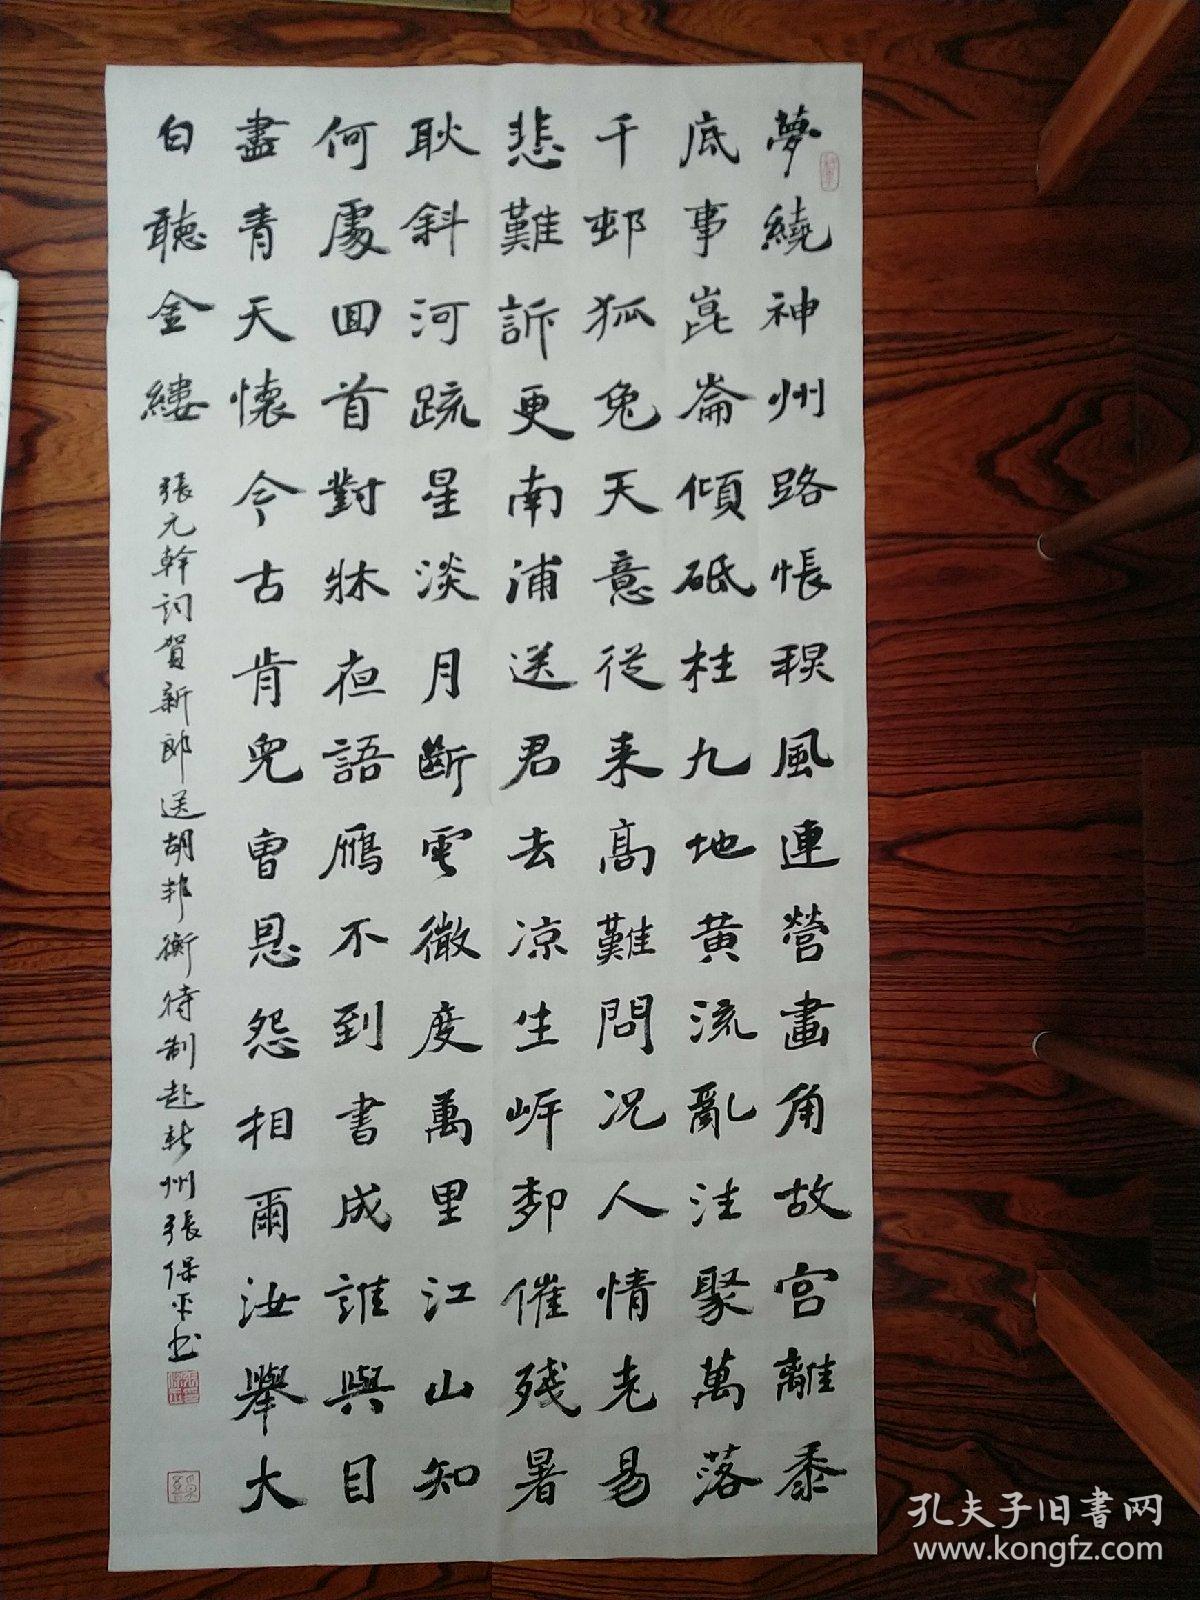 夢繞神州路悵秋風連營畫角故宮離黍
底事崑崙傾砥柱九地黄流亂注聚萬落
千邨狐兔天意從来高難問況人情老易
悲難訴更南浦送君去凉生岸柳催殘暑
耿斜河疏星淡月斷雲微度萬里江山知
何處回首對牀夜語雁不到書成誰與目
盡青天懷今古肯兒曹恩怨相爾汝舉大
白聽金縷
張元幹詞賀新郎送胡邦衡待制赴新州張保平书
孔夫子旧書网
www.kongfz.com